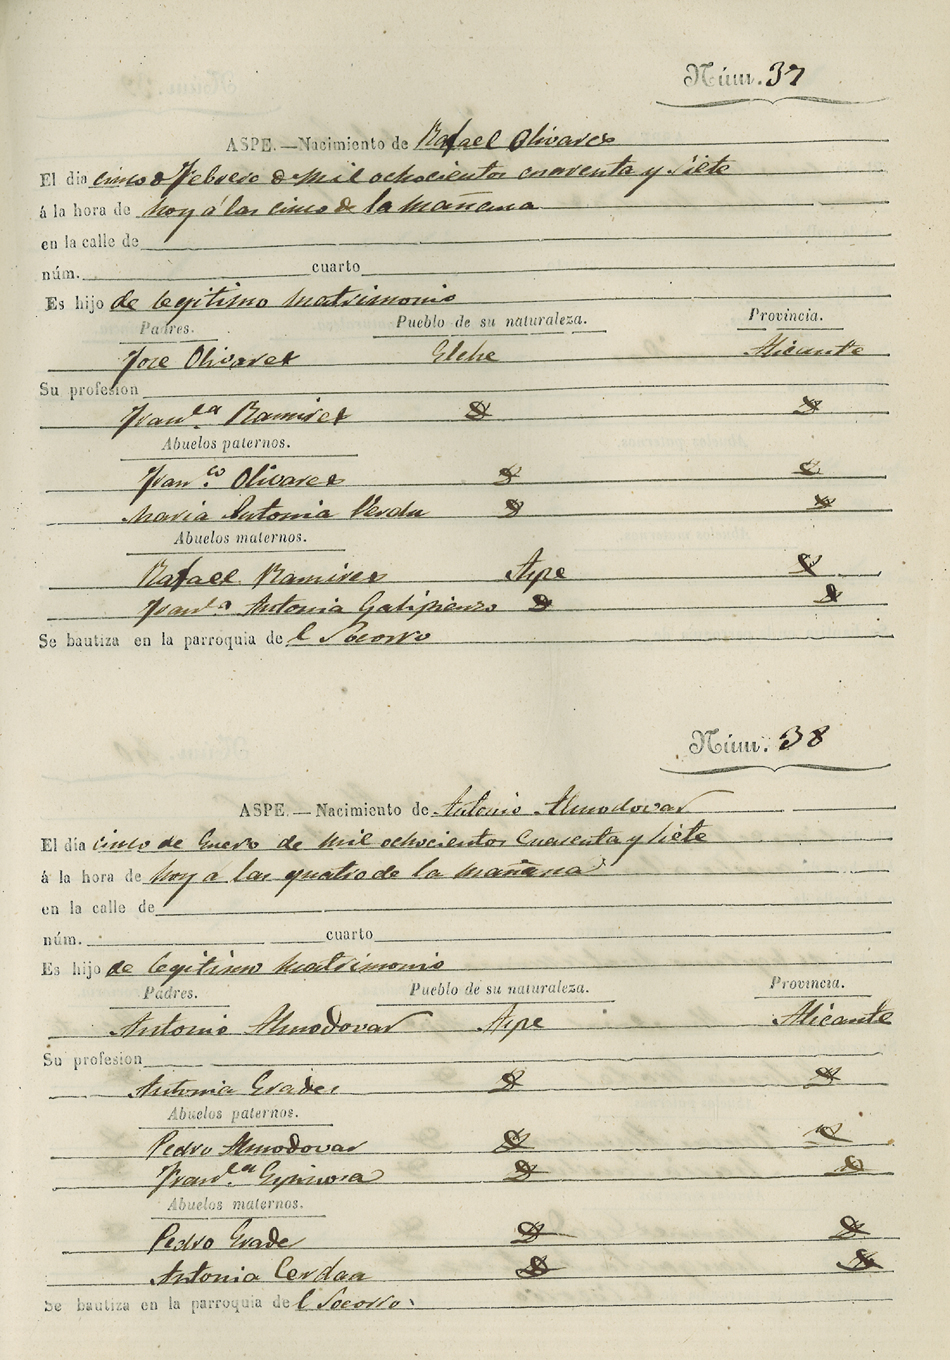 Núm. 37
ASPE.—Nacimiento de Rafael Olivares
El dia cinco d Febrero d mil ochocientos cuarenta y siete
á la hora de hoy á las cinco de la mañana
en la calle de
núm. cuarto
Es hijo de legitimo matrimonio
Padres. Pueblo de su naturaleza. Provincia.
Jose Olivares Elche Alicante
Su profesion
Franca Ramires
Abuelos paternos.
Franco Olivares
Maria Antonia Verdu
Abuelos maternos.
Rafael Ramires Aspe
Franca Antonia Galipienzo
Se bautiza en la parroquia de l Socorro
Núm. 38
ASPE.—Nacimiento de Antonio Almodovar
El dia cinco de Enero de mil ochocientos cuarenta y siete
á la hora de hoy a las quatro de la mañana
en la calle de
núm. cuarto
Es hijo de legitimo matrimonio
Padres. Pueblo de su naturaleza. Provincia.
Antonio Almodovar Aspe Alicante
Su profesion
Antonia Grades
Abuelos paternos.
Pedro Almodovar
Franca Espinosa
Abuelos maternos.
Pedro Grade
Antonia Cerdan
Se bautiza en la parroquia de l Socorro